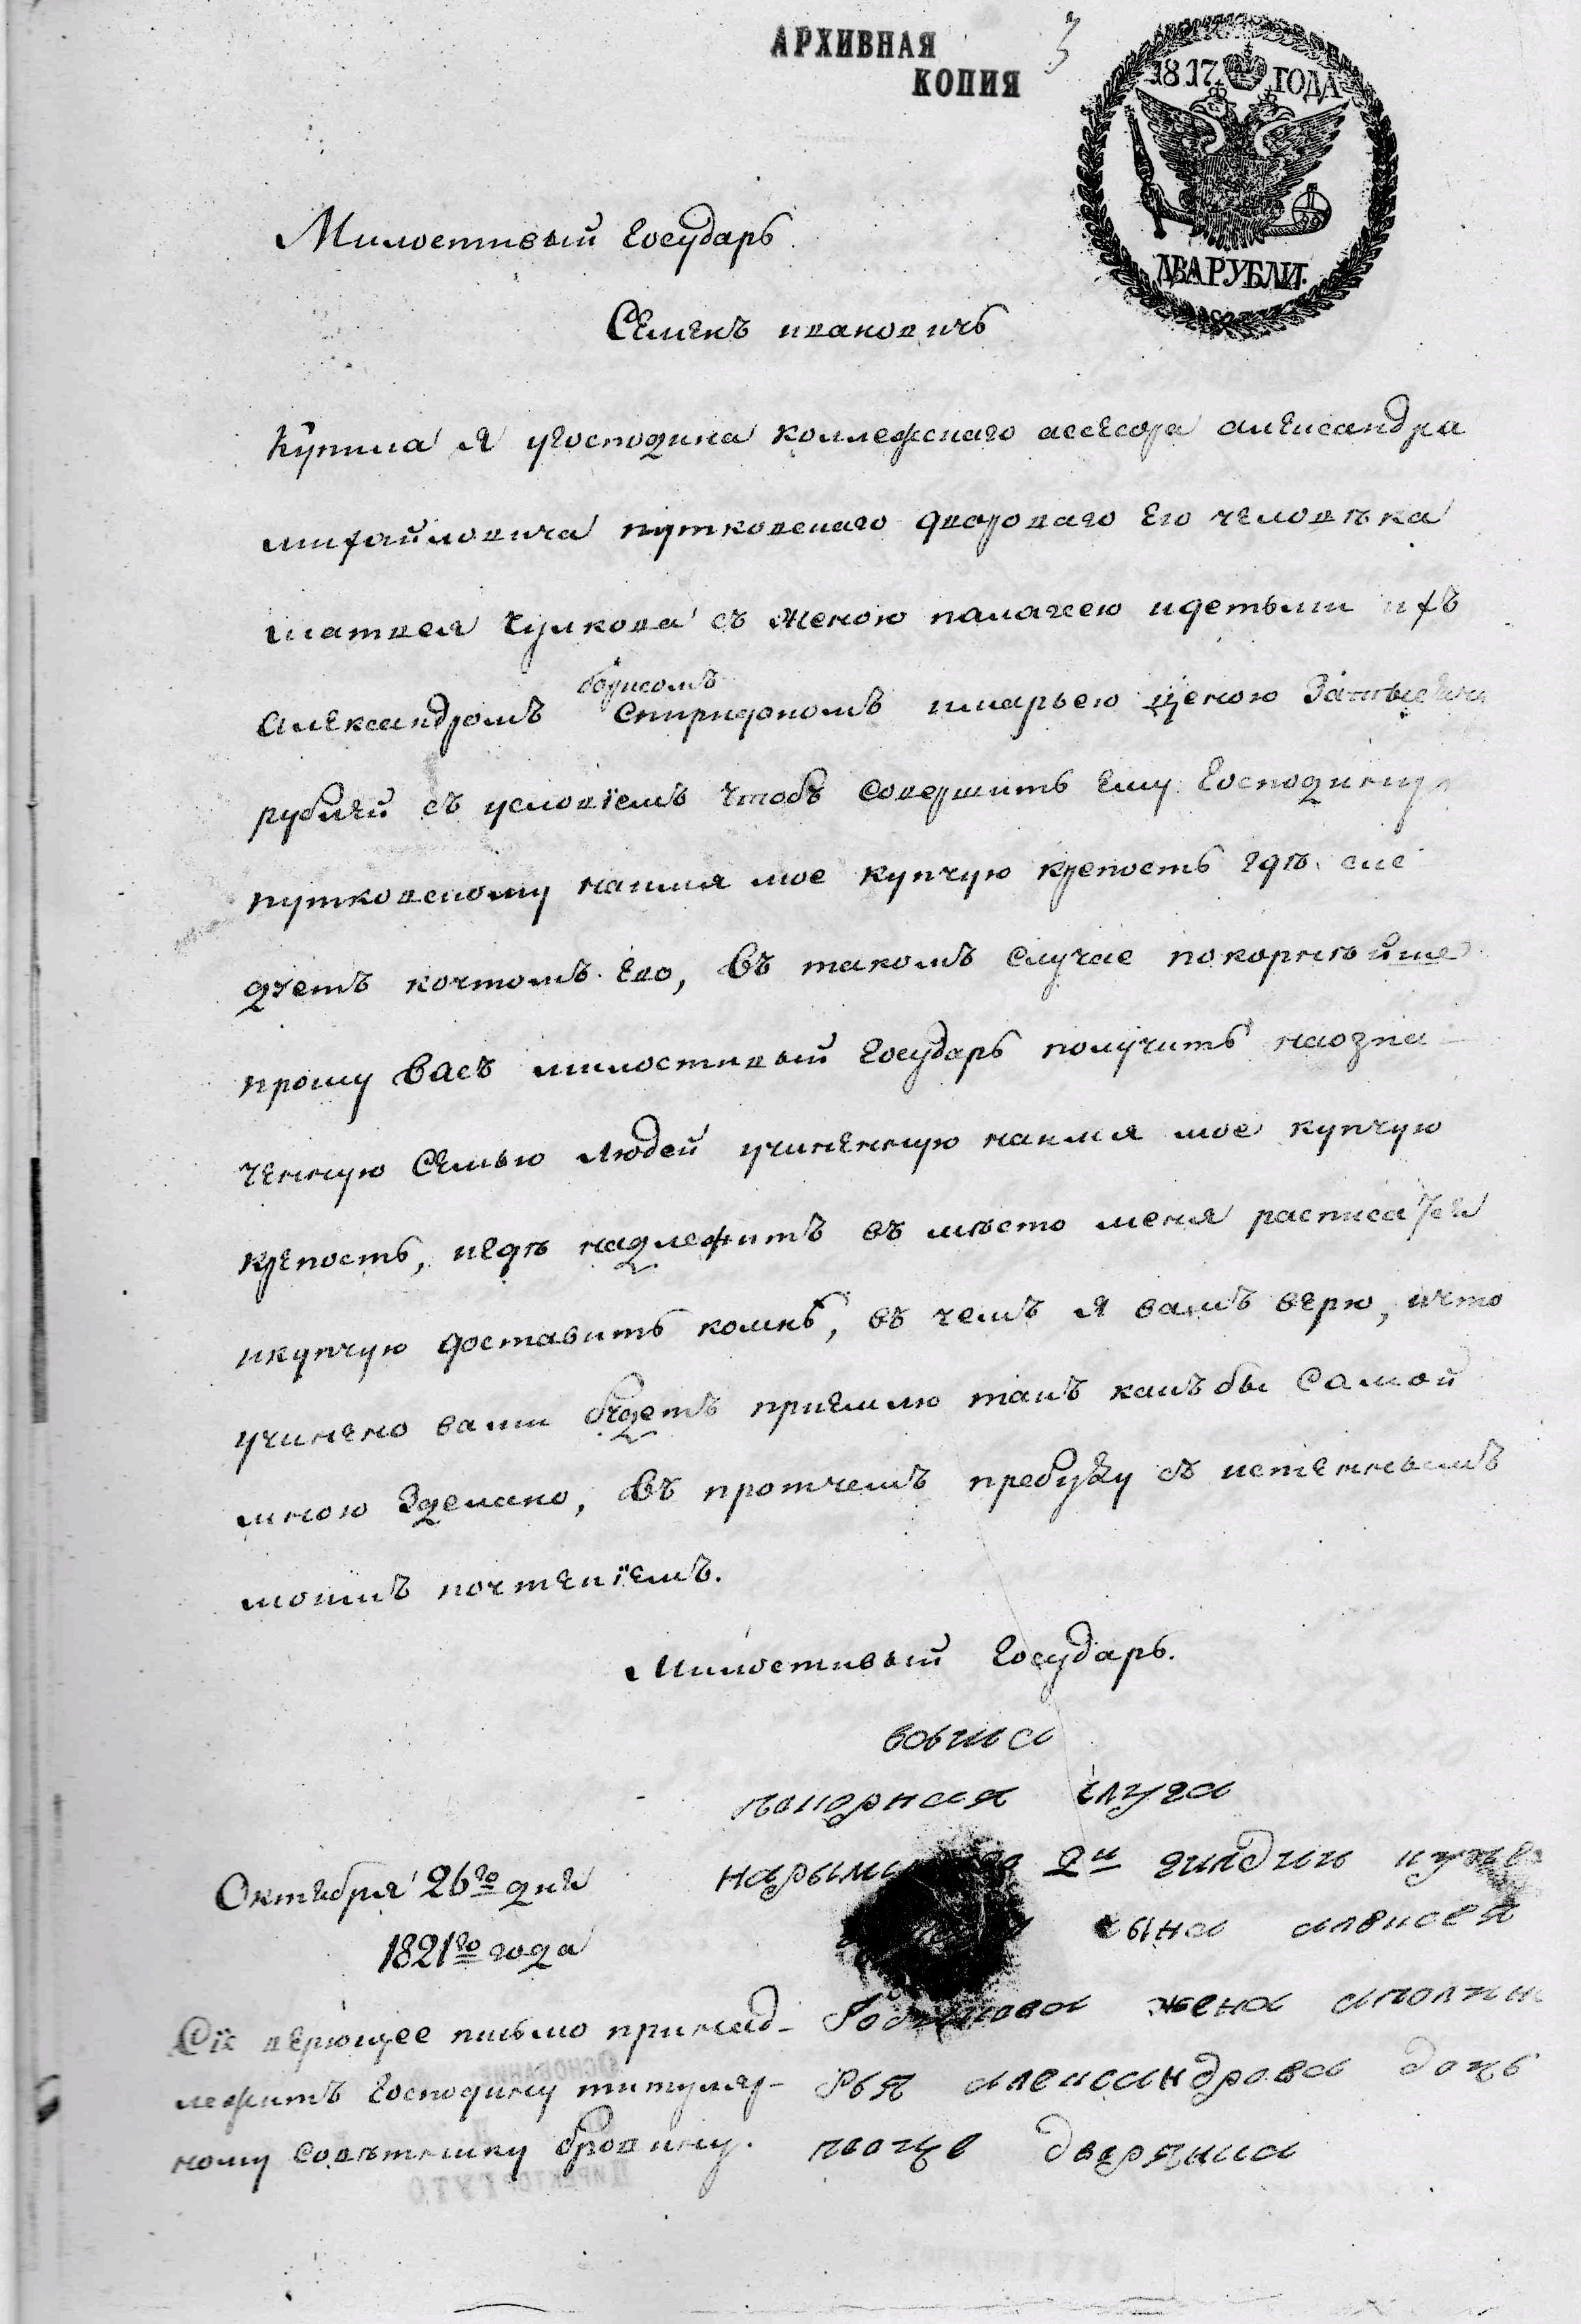 АРХИВНАЯ
КОПИЯ
3
1817 ГОДА
ДВА РУБЛИ.
Милостивый Государь
Семенъ ивановичь
Купила я угосподина коллежскаго асесора александра
михайловича путковскаго двороваго Его человѣка
матвея Чулкова съ женою палагеею идетьми ихъ
борисомъ
Александромъ Спиридономъ имарьею ценою За
рублей съ условїемъ чтобъ Совершить Ему Господину
путковскому наимя мое купчую крепость гдѣ сле
дуетъ коштомъ Ево, Въ такомъ Случае покорнѣйше
прошу Васъ милостивый Государь получить наозна
ченную Семью Людей учиненную наимя мое купчую
крепость, игдѣ надлежитъ въ мѣсто меня росписатся
икупчую доставить комнѣ, въ чемъ я вамъ верю, ичто
учинено вами будетъ приемлю такъ какъ бы Самой
мною Зделано, Въ протчемъ пребуду съ истеннымъ
моимъ почтенїемъ.
Милостивый Государь.
ваша
покорная слуга
2й гилдии
сына алексея
Родюкова жена аполин
рья александрова дочь
изъ дворянка
Октября 26го дня
1821го года
Сїе верющее письмо принад-
лежитъ Господину титуляр-
ному Советнику бровину.